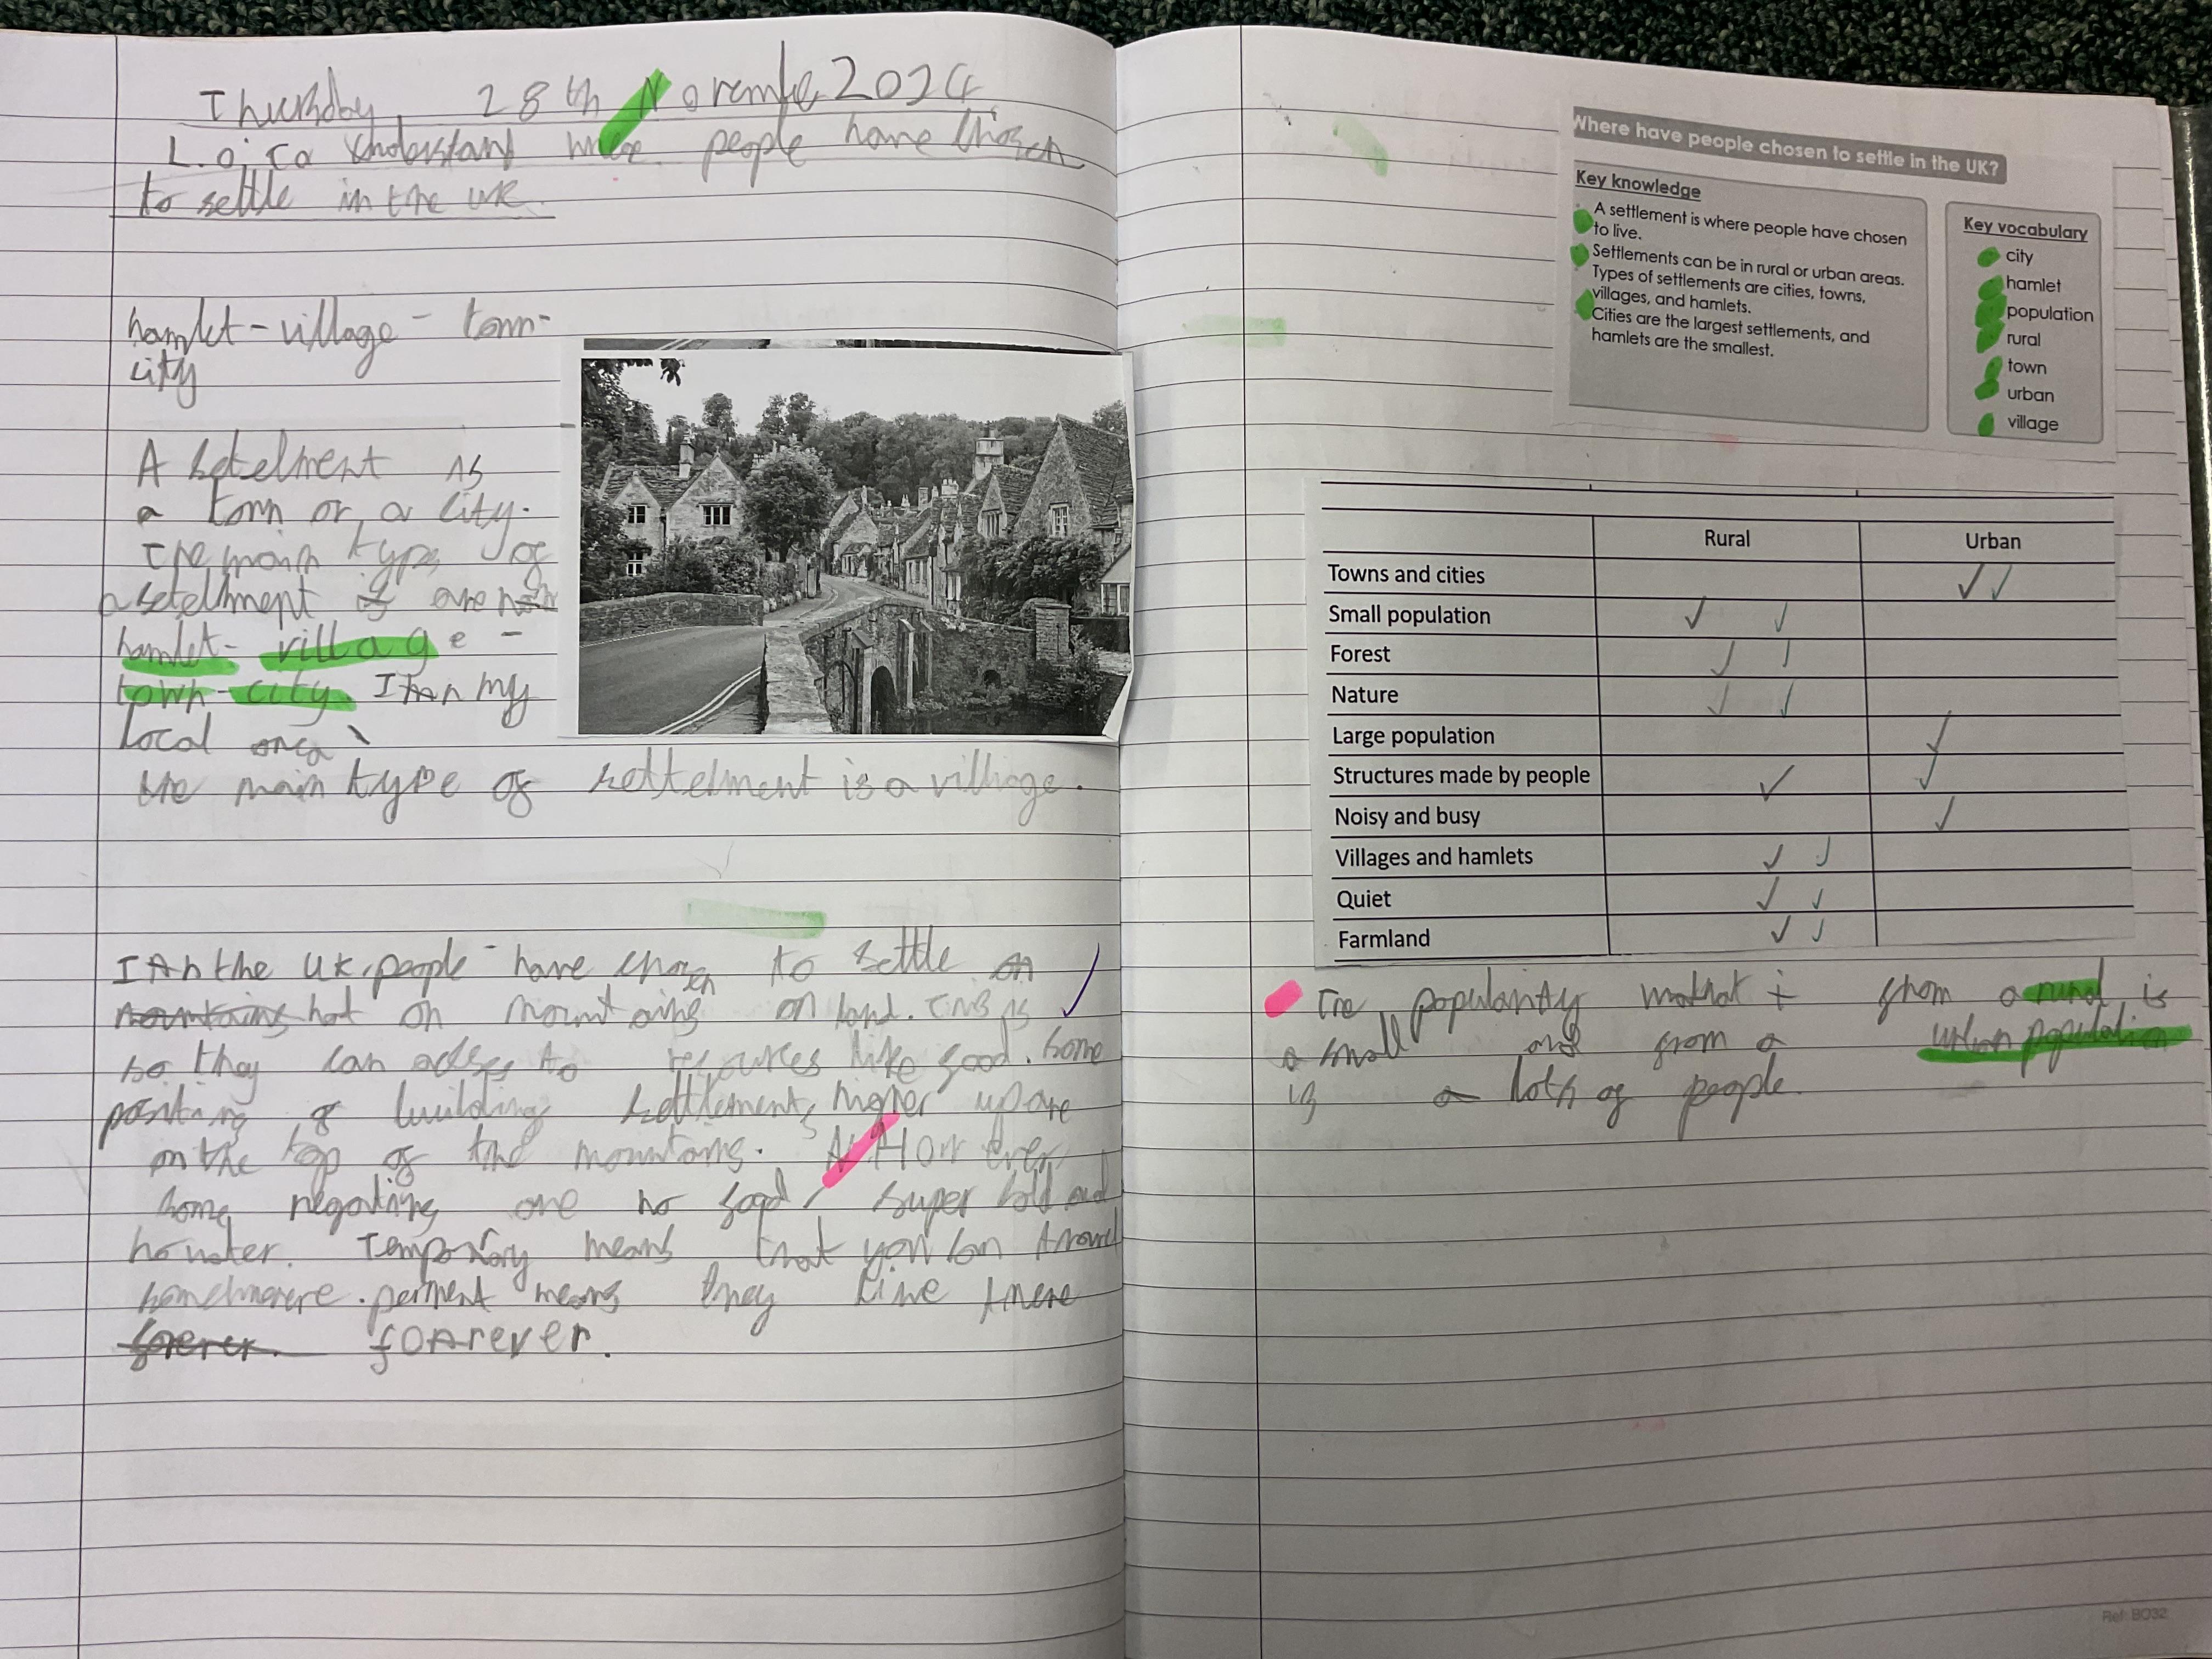 Thursday, 28th November 2024
L.O: To understand where people have chosen
to settle in the UK.
hamlet - village - town -
city
A setelment is
a town or a city.
The main type of
a setellment is are
hamlet - village -
town - city. In my
local area
the main type of settelment is a village.
In the UK, people have chosen to settle on
mountains not on mountains on land. This is
so they can to resources like food. Some
of building settlements higher up are
on the top of the mountains. How ever
some negatives are no food, super cold and
no water. Temporary means that you can
. perment means they live there
forever. forever.
Where have people chosen to settle in the UK?
Key knowledge
A settlement is where people have chosen
to live.
Settlements can be in rural or urban areas.
Types of settlements are cities, towns,
villages, and hamlets.
Cities are the largest settlements, and
hamlets are the smallest.
Key vocabulary
city
hamlet
population
rural
town
urban
village
Rural Urban
Towns and cities ✓✓
Small population ✓ ✓
Forest ✓ ✓
Nature ✓ ✓
Large population ✓
Structures made by people ✓ ✓
Noisy and busy ✓
Villages and hamlets ✓ ✓
Quiet ✓ ✓
Farmland ✓ ✓
The popularity from a rural is
a small and from a urban population
is a lots of people.
Ref: BO32